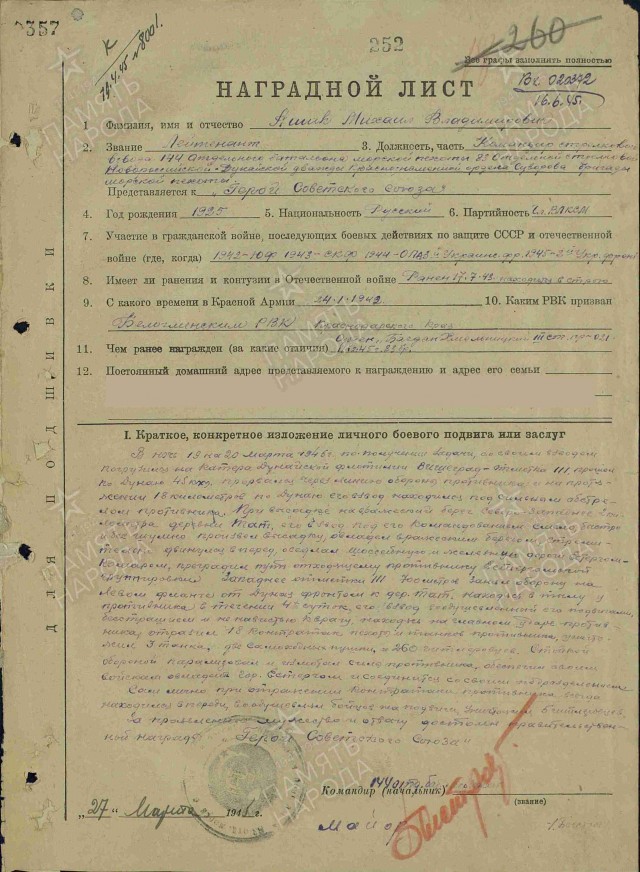 357
К
19.4.45 №8001.
252
260
Все графы заполнять полностью
Вх. 020392
16.6.45.
НАГРАДНОЙ ЛИСТ
1 Фамилия, имя и отчество Ашик Михаил Владимирович
2. Звание Лейтенант 3. Должность, часть Командир стрелкового
взвода 144 Отдельного батальона морской пехоты 83 Отдельной стрелковой
Новороссийской-Дунайской дважды Краснознаменной ордена Суворова бригады
морской пехоты.
Представляется к „Герой Советского Союза"
4. Год рождения 1925 5. Национальность Русский 6. Партийность Чл. ВЛКСМ
7. Участие в гражданской войне, последующих боевых действиях по защите СССР и отечественной
войне (где, когда) 1942-ЮФ 1943-СКФ 1944-ОПА 3й Украинс. фр. 1945-2й Укр. фронт
8. Имеет ли ранения и контузии в Отечественной войне Ранен 17.7.43
9. С какого времени в Красной Армии 24.1.1943 10. Каким РВК призван
Белоглинским РВК Краснодарского Края
11. Чем ранее награжден (за какие отличия) Орден „Богдан Хмельницкий III ст.
12. Постоянный домашний адрес представляемого к награждению и адрес его семьи
I. Краткое, конкретное изложение личного боевого подвига или заслуг
В ночь 19 на 20 марта 1945 г. по получении задачи, со своим взводом
погрузись на катера Дунайской флотилии
по Дунаю 45 км, прорвались через линию обороны противника, и на протя-
жении 18 километров по Дунаю его взвод находился под сильным обстре-
лом противника. При высадке на вражеский берег Северо-Западнее 3 ки-
лометра деревни Тат, его взвод под его командованием смело, быстро
и бесшумно произвел высадку, овладел вражеским берегом и стреми-
тельно двинулся вперед, оседлал шоссейную и железную дороги Эстергом-
Комаром, преградил путь отходящему противнику Эстергомской
группировки. Западнее отметки 111 700 метров занял оборону на
левом фланге от Дуная фронтом к дер. Тат. находясь в тылу у
противника в течении 4х суток, его взвод воодушевленный его подвигами,
бесстрашием и ненавистью к врагу, находясь на главном ударе против-
ника, отразил 18 контратак пехоты и танков противника, уничто-
жил 3 танка, две самоходные пушки, и 260 гитлеровцев. Стойкой
обороной парализовал и измотал силы противника, облегчил своим
войскам овладеть гор. Эстергом и соединился со своими подразделениями.
Сам лично при отражении контратак противника
находился впереди, воодушевлял бойцов на подвиги, уничтожил 6 гитлеровцев.
За проявленное мужество и отвагу достоин правительствен-
ной награды „Герой Советского Союза"
Командир (начальник) 144
(звание)
Майор
„27" Марта 1945 г.
ДЛЯ ПОДШИВКИ
ПАМЯТЬ НАРОДА